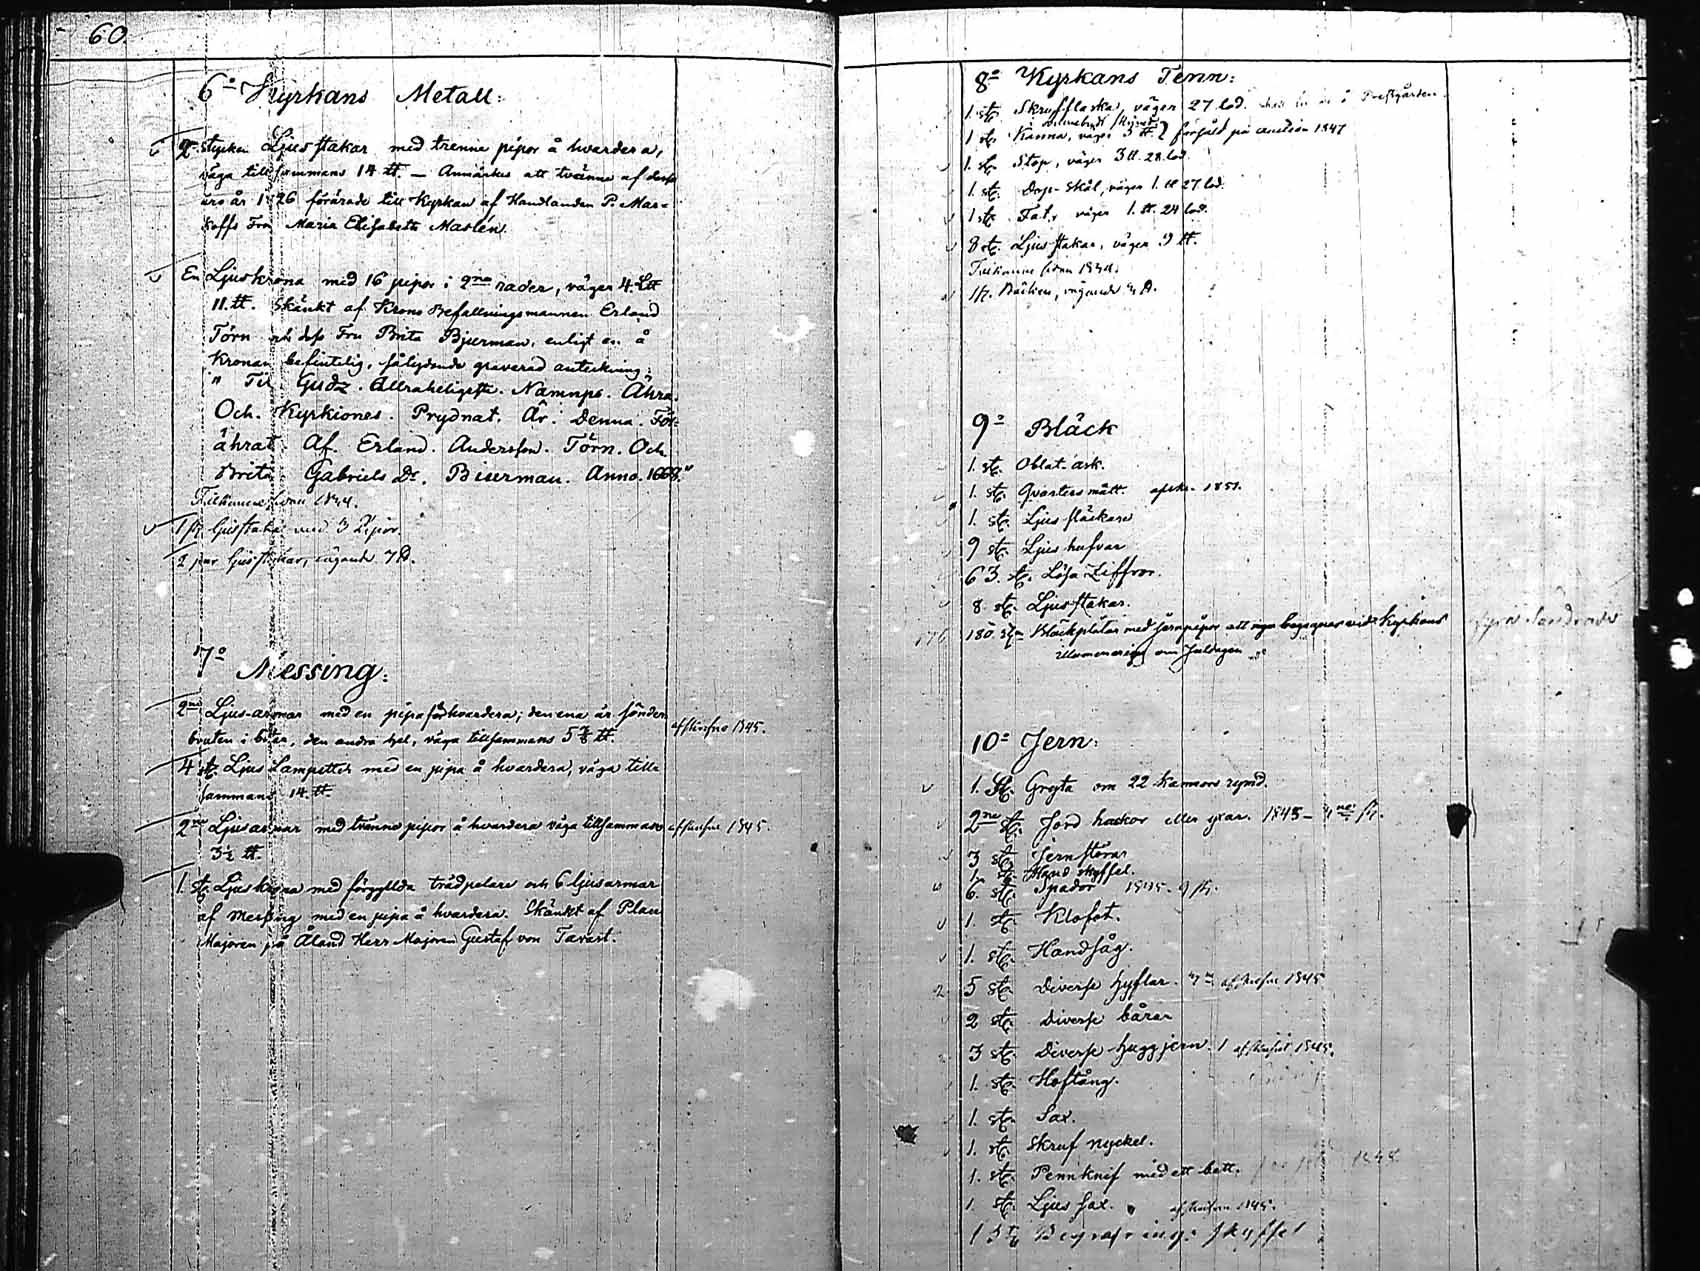 60
6º Kyrkans Metall:
2 stycken Ljusstakar med trenne pipor å hvardera,
väga tillsammans 14 ℔. — Anmärkes att tvänne af dessa
äro år 1726 förärade till Kyrkan af Handlanden P. Mas-
Fru Maria Elisabeth Maslén.
En Ljuskrona med 16 pipor i 2ne rader, väger 4. L℔
11. ℔. Skänkt af Krono Befallningsmannen Erland
Törn och dess Fru Brita Bjurman, enligt en å
Kronan befintelig, sålydande graverad anteckning:
" Til. Gudz. Allraheligste. Namnps. Ähra.
Och. Kyrkiones. Prydnat. Är. Denna. För-
ährat. Af. Erland. Andersson. Törn. Och.
Brita Gabriels Dr. Biserman. Anno. 1668."
Tillkomne sedan 1834.
1 st. ljusstake med 3 Pipor.
2 par ljusstakar, vägande 7 ℔.
7º Messing:
2ne Ljus-armar med en pipa på hvardera; den ena är sönder
bruten i bitar, den andra hel, väga tillsammans 5 ℔. afskrefne 1845.
4 st. Ljus Lampetter med en pipa å hvardera, väga till-
sammans 14. ℔.
2ne Ljusarmar med tvänne pipor å hvardera väga tillsammans afskrefne 1845.
3½ ℔.
1. st. Ljuskrona med förgyllda trädpelare och 6 ljusarmar
af Messing med en pipa å hvardera. Skänkt af Plats
Majoren på Åland Herr Majoren Gustaf von Tavast.
8º Kyrkans Tenn:
1. st. Skrufflaska, väger 27 lod. i Prestgården.
1 st. Kanna, väger 3 ℔. försåld på auction 1847
1. st. Stop, väger 3 ℔. 28 lod.
1. st. Dop-Skål, väger 1. ℔ 27 lod.
1 st. Fat, väger 1. ℔. 24 lod.
8 st. Ljusstakar, väger 9 ℔.
Tillkomne sedan 1834.
1 st. Bäcken, vägande 4 ℔.
9º Bläck
1. st. Oblat-ask.
1. st. Qvartersmått. afskr. 1851.
1. st. Ljus släckare
9 st. Ljus hufvar
63. st. Lösa Ziffror.
8. st. Ljusstakar.
176 180. st. Bläckplåtar med jernpipor att nyo begagnas vid Kyrkans
illuminering om Juldagen
10º Jern:
1. St. Gryta om 22 kannors rymd.
2ne st. Jord hackor eller yxar. 1845 – 4ne st.
3 st. Jernstörar
1. st. Hand skyffel.
6. st. Spador 1845. 9 st.
1. st. Klofot.
1. st. Handsåg.
5 st. Diverse hyflar. afskrefne 1845
2 st. Diverse bårar
3 st. Diverse huggjern. 1 afskrifvit 1845.
1. st. Hoftång.
1. st. Sax.
1. st. Skruf nyckel.
1. st. Pennknif med ett bett. 1848.
1. st. Ljus sax. afskrifven 1845.
1 st Begrafnings skyffel